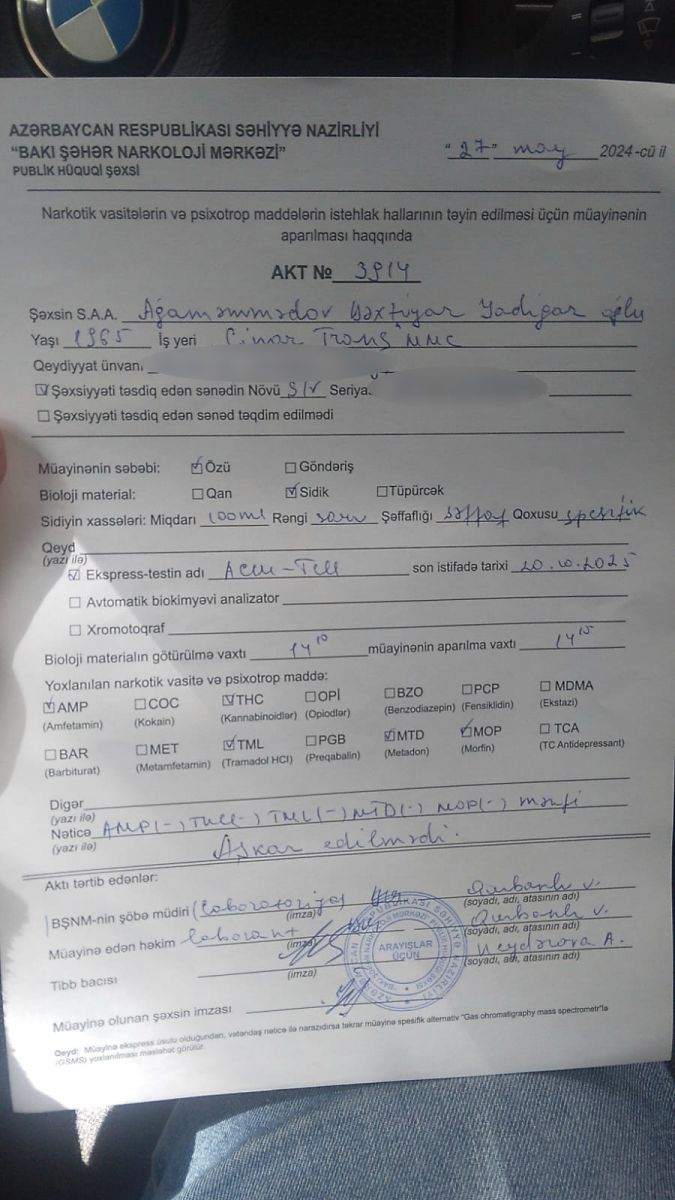 AZƏRBAYCAN RESPUBLİKASI SƏHİYYƏ NAZİRLİYİ
"BAKI ŞƏHƏR NARKOLOJİ MƏRKƏZİ"
PUBLİK HÜQUQİ ŞƏXSİ
"27" may 2024-cü il
Narkotik vasitələrin və psixotrop maddələrin istehlak hallarının təyin edilməsi üçün müayinənin
aparılması haqqında
AKT № 3914
Şəxsin S.A.A. Ağaməmmədov Bəxtiyar Yadigar oğlu
Yaşı 1965 İş yeri Çinar Trans MMC
Qeydiyyat ünvanı
Şəxsiyyəti təsdiq edən sənədin Növü Ş/V Seriya
Şəxsiyyəti təsdiq edən sənəd təqdim edilmədi
Müayinənin səbəbi: Özü Göndəriş
Bioloji material: Qan Sidik Tüpürcək
Sidiyin xassələri: Miqdarı 100ml Rəngi sarı Şəffaflığı şəffaf Qoxusu spesifik
Qeyd
(yazı ilə)
Ekspress-testin adı son istifadə tarixi 20.10.2025
Avtomatik biokimyəvi analizator
Xromotoqraf
Bioloji materialın götürülmə vaxtı 14 10 müayinənin aparılma vaxtı 14 15
Yoxlanılan narkotik vasitə və psixotrop maddə:
AMP COC THC OPİ BZO PCP MDMA
(Amfetamin) (Kokain) (Kannabinoidlər) (Opiodlər) (Benzodiazepin) (Fensiklidin) (Ekstazi)
BAR MET TML PGB MTD MOP TCA
(Barbiturat) (Metamfetamin) (Tramadol HCI) (Preqabalin) (Metadon) (Morfin) (TC Antidepressant)
Digər
(yazı ilə)
Nəticə AMP(-), THC(-), TML(-), MTD(-), MOP(-), mənfi
(yazı ilə) Aşkar edilmədi.
Aktı tərtib edənlər:
BŞNM-nin şöbə müdiri (Laboratoriya Qurbanlı V.
(imza) (soyadı, adı, atasının adı)
Müayinə edən həkim laborant Qurbanlı V.
(imza) (soyadı, adı, atasının adı)
Tibb bacısı Heydərova A.
(imza) (soyadı, adı, atasının adı)
ARAYIŞLAR ÜÇÜN
Müayinə olunan şəxsin imzası
Qeyd: Müayinə ekspress üsulu olduğundan, vətəndaş nəticə ilə narazıdırsa təkrar müayinə spesifik alternativ "Gas ohromatigraphy mass spectrometr"lə
(GSMS) yoxlanılması məsləhət görülür.